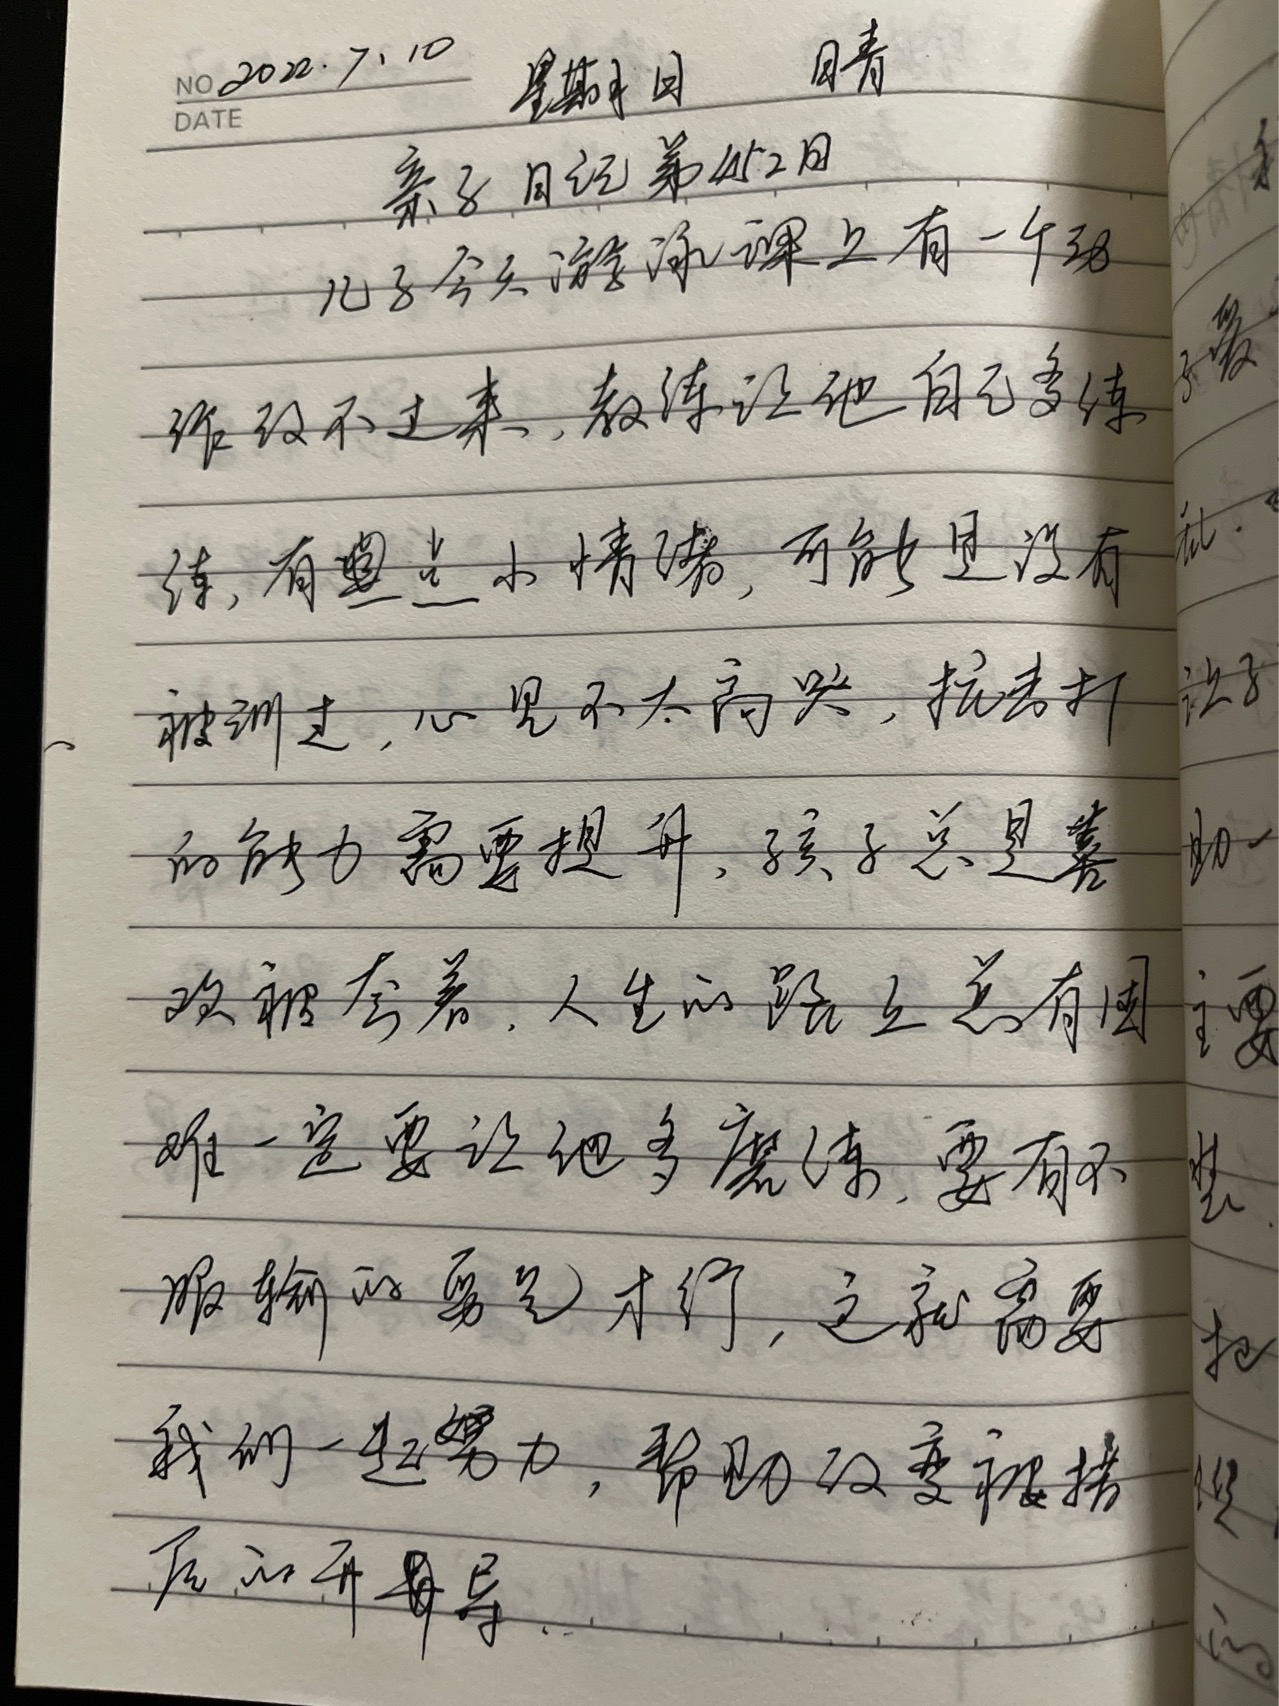 NO 2022.7.10
DATE
星期日 晴
亲子日记第452日
儿子今天游泳课上有一个动
作改不过来,教练让他自己多练
练,有点小情绪,可能是没有
被训过,心里不太高兴,抗击打
的能力需要提升,孩子总是喜
欢被夸着,人生的路上总有困
难一定要让他多磨练,要有不
服输的勇气才行,这就需要
我们一起努力,帮助改变被挫
后的开导.